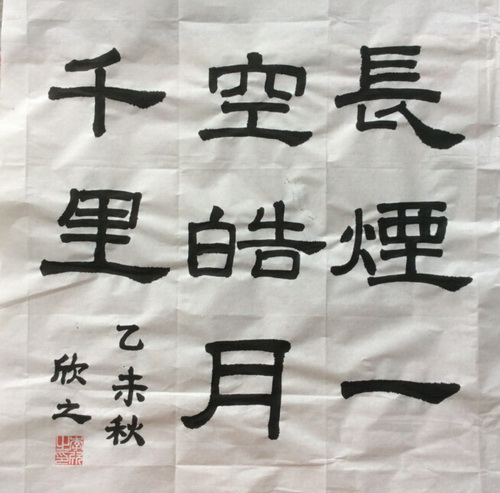 長煙一
空皓月
千里
乙未秋
欣之